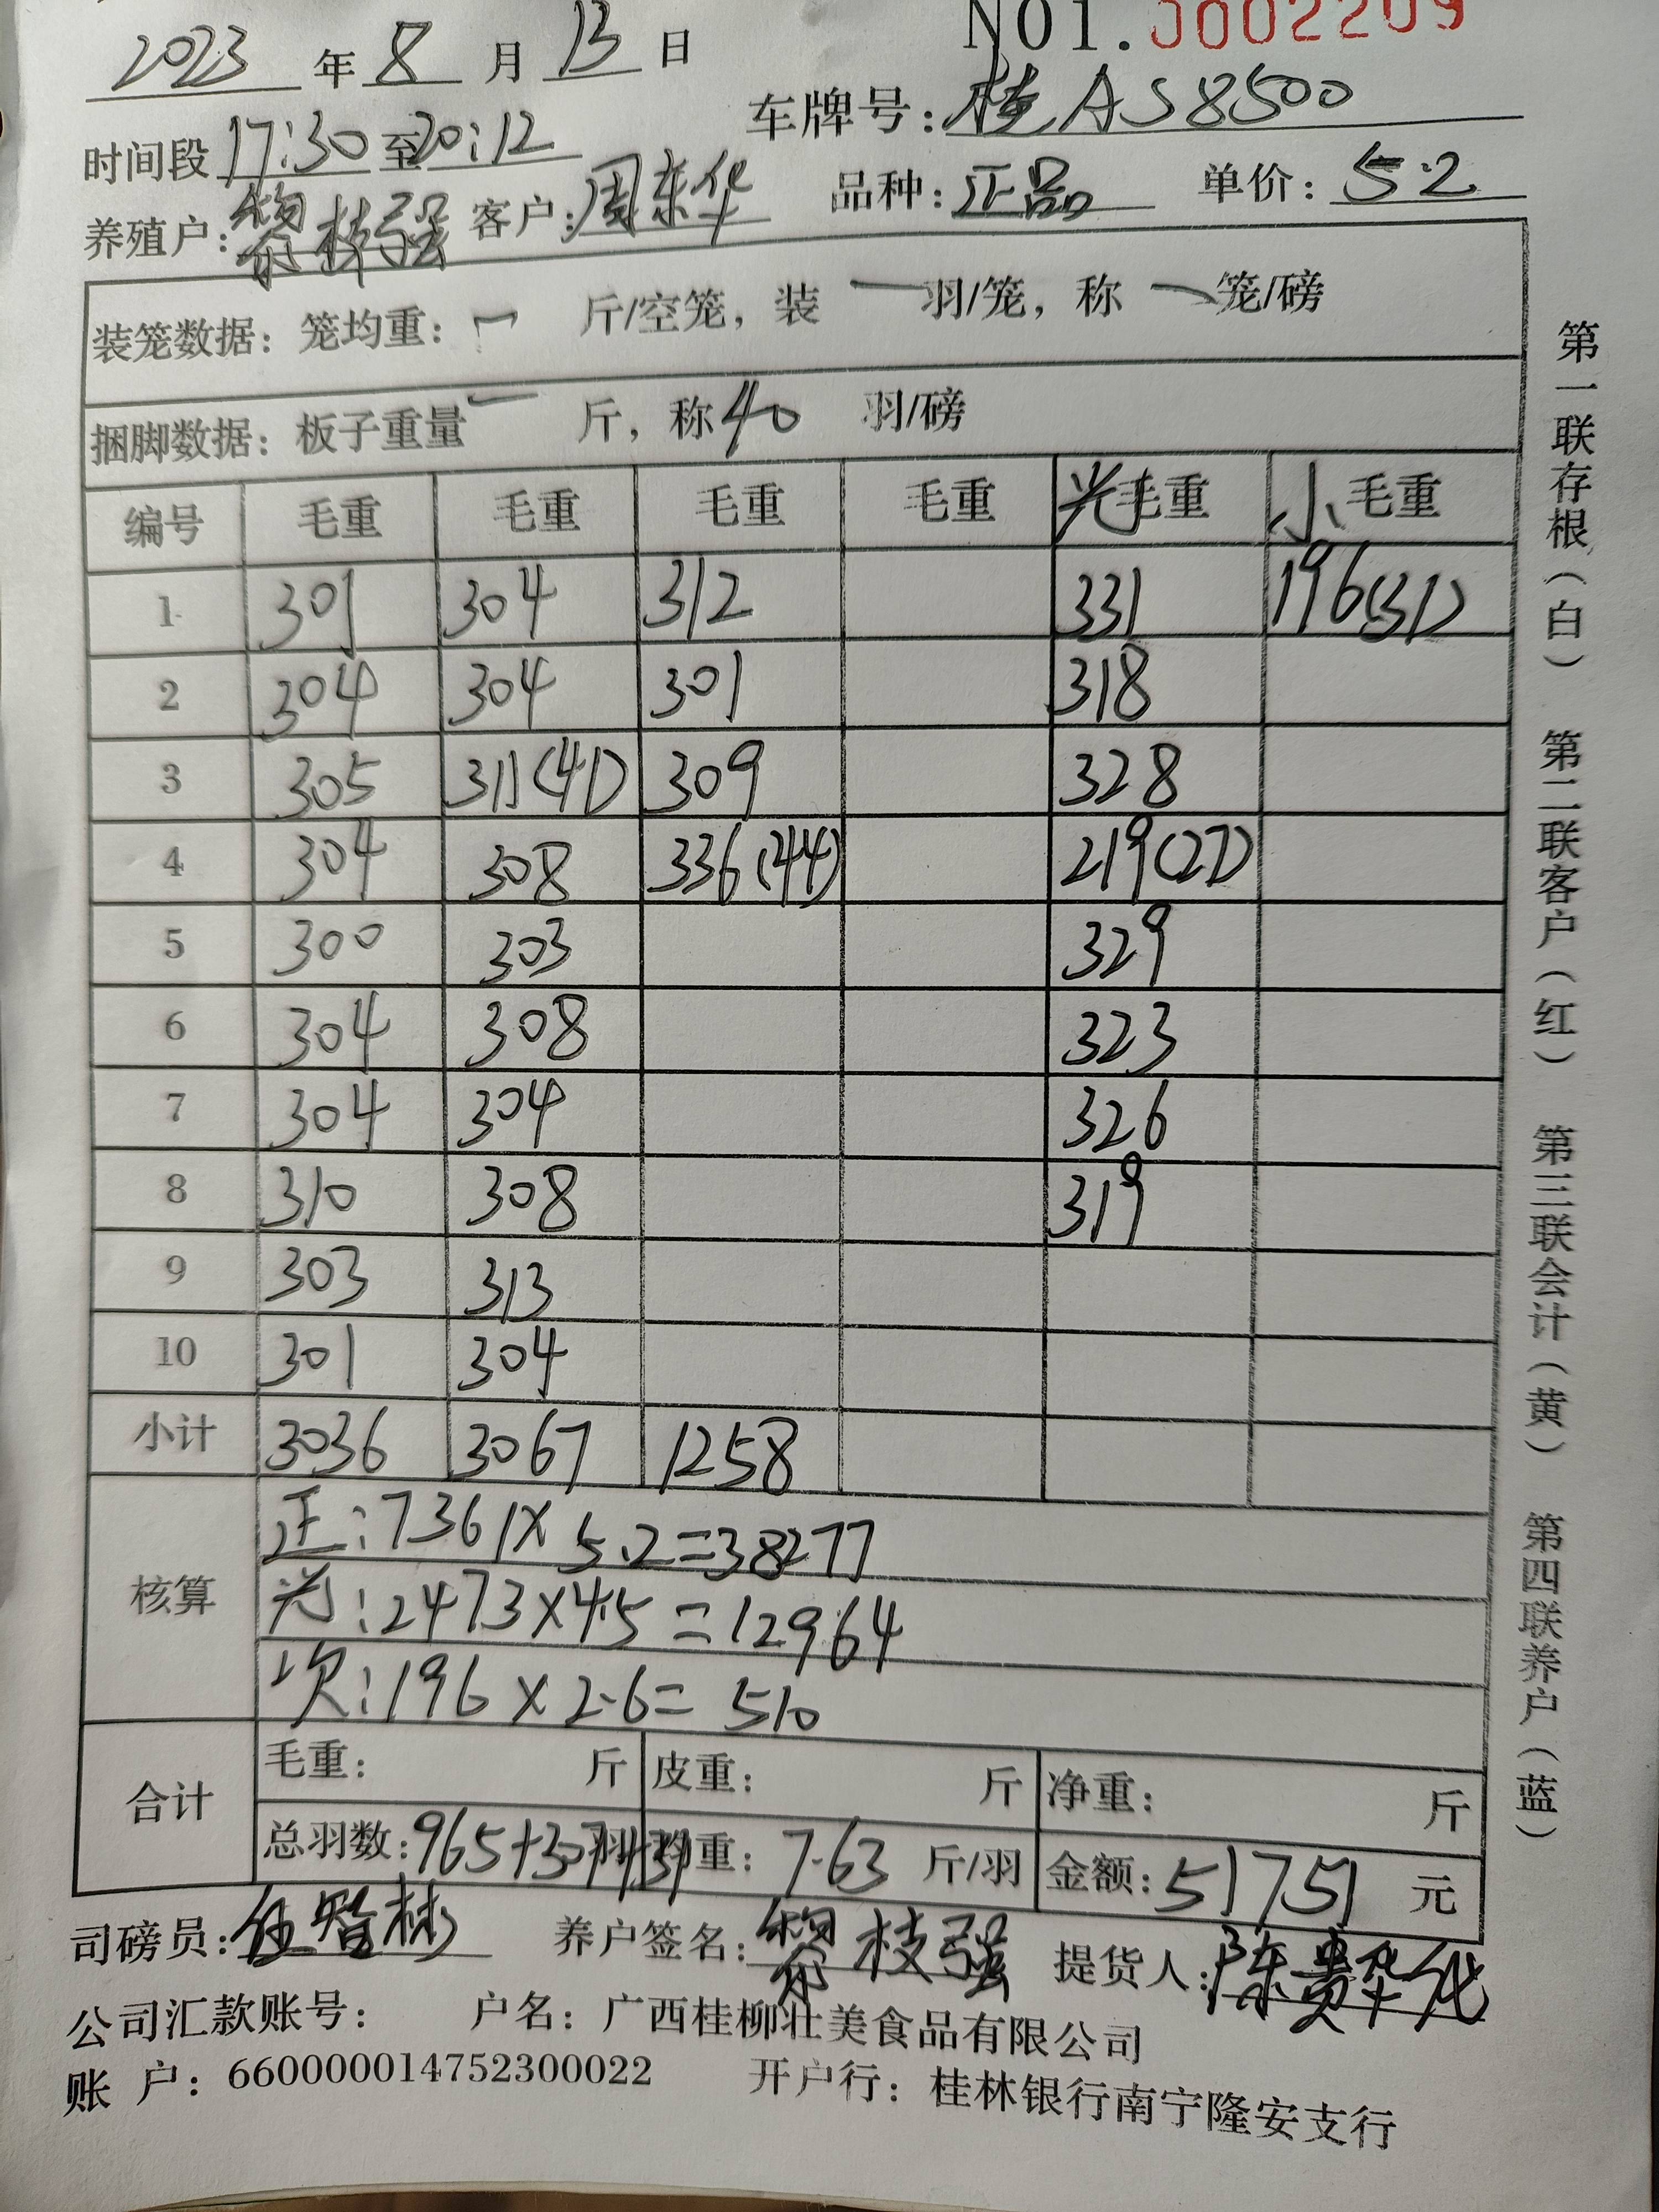 2023 年 8 月 13 日 NO1. 0002209
时间段 17:30 至 20:12 车牌号: 桂AS8500
养殖户: 黎枝强 客户: 周东华 品种: 正品 单价: 5.2
装笼数据: 笼均重: 一 斤/空笼, 装 一 羽/笼, 称 一 笼/磅
捆脚数据: 板子重量 一 斤, 称 40 羽/磅
编号 毛重 毛重 毛重 毛重 光毛重 小毛重
1 301 304 312 331 196(31)
2 304 304 301 318
3 305 311(41) 309 328
4 304 308 336(44) 219(27)
5 300 303 329
6 304 308 323
7 304 304 326
8 310 308 319
9 303 313
10 301 304
小计 3036 3067 1258
核算 正:7361×5.2=38277
光:2473×4.5=12964
次:196×2.6=510
合计 毛重: 斤 皮重: 斤 净重: 斤
总羽数: 965+307+31 羽 均重: 7.63 斤/羽 金额: 51751 元
司磅员: 养户签名: 黎枝强 提货人: 陈贵华
公司汇款账号: 户名: 广西桂柳壮美食品有限公司
账 户: 660000014752300022 开户行: 桂林银行南宁隆安支行
第一联存根(白) 第二联客户(红) 第三联会计(黄) 第四联养户(蓝)